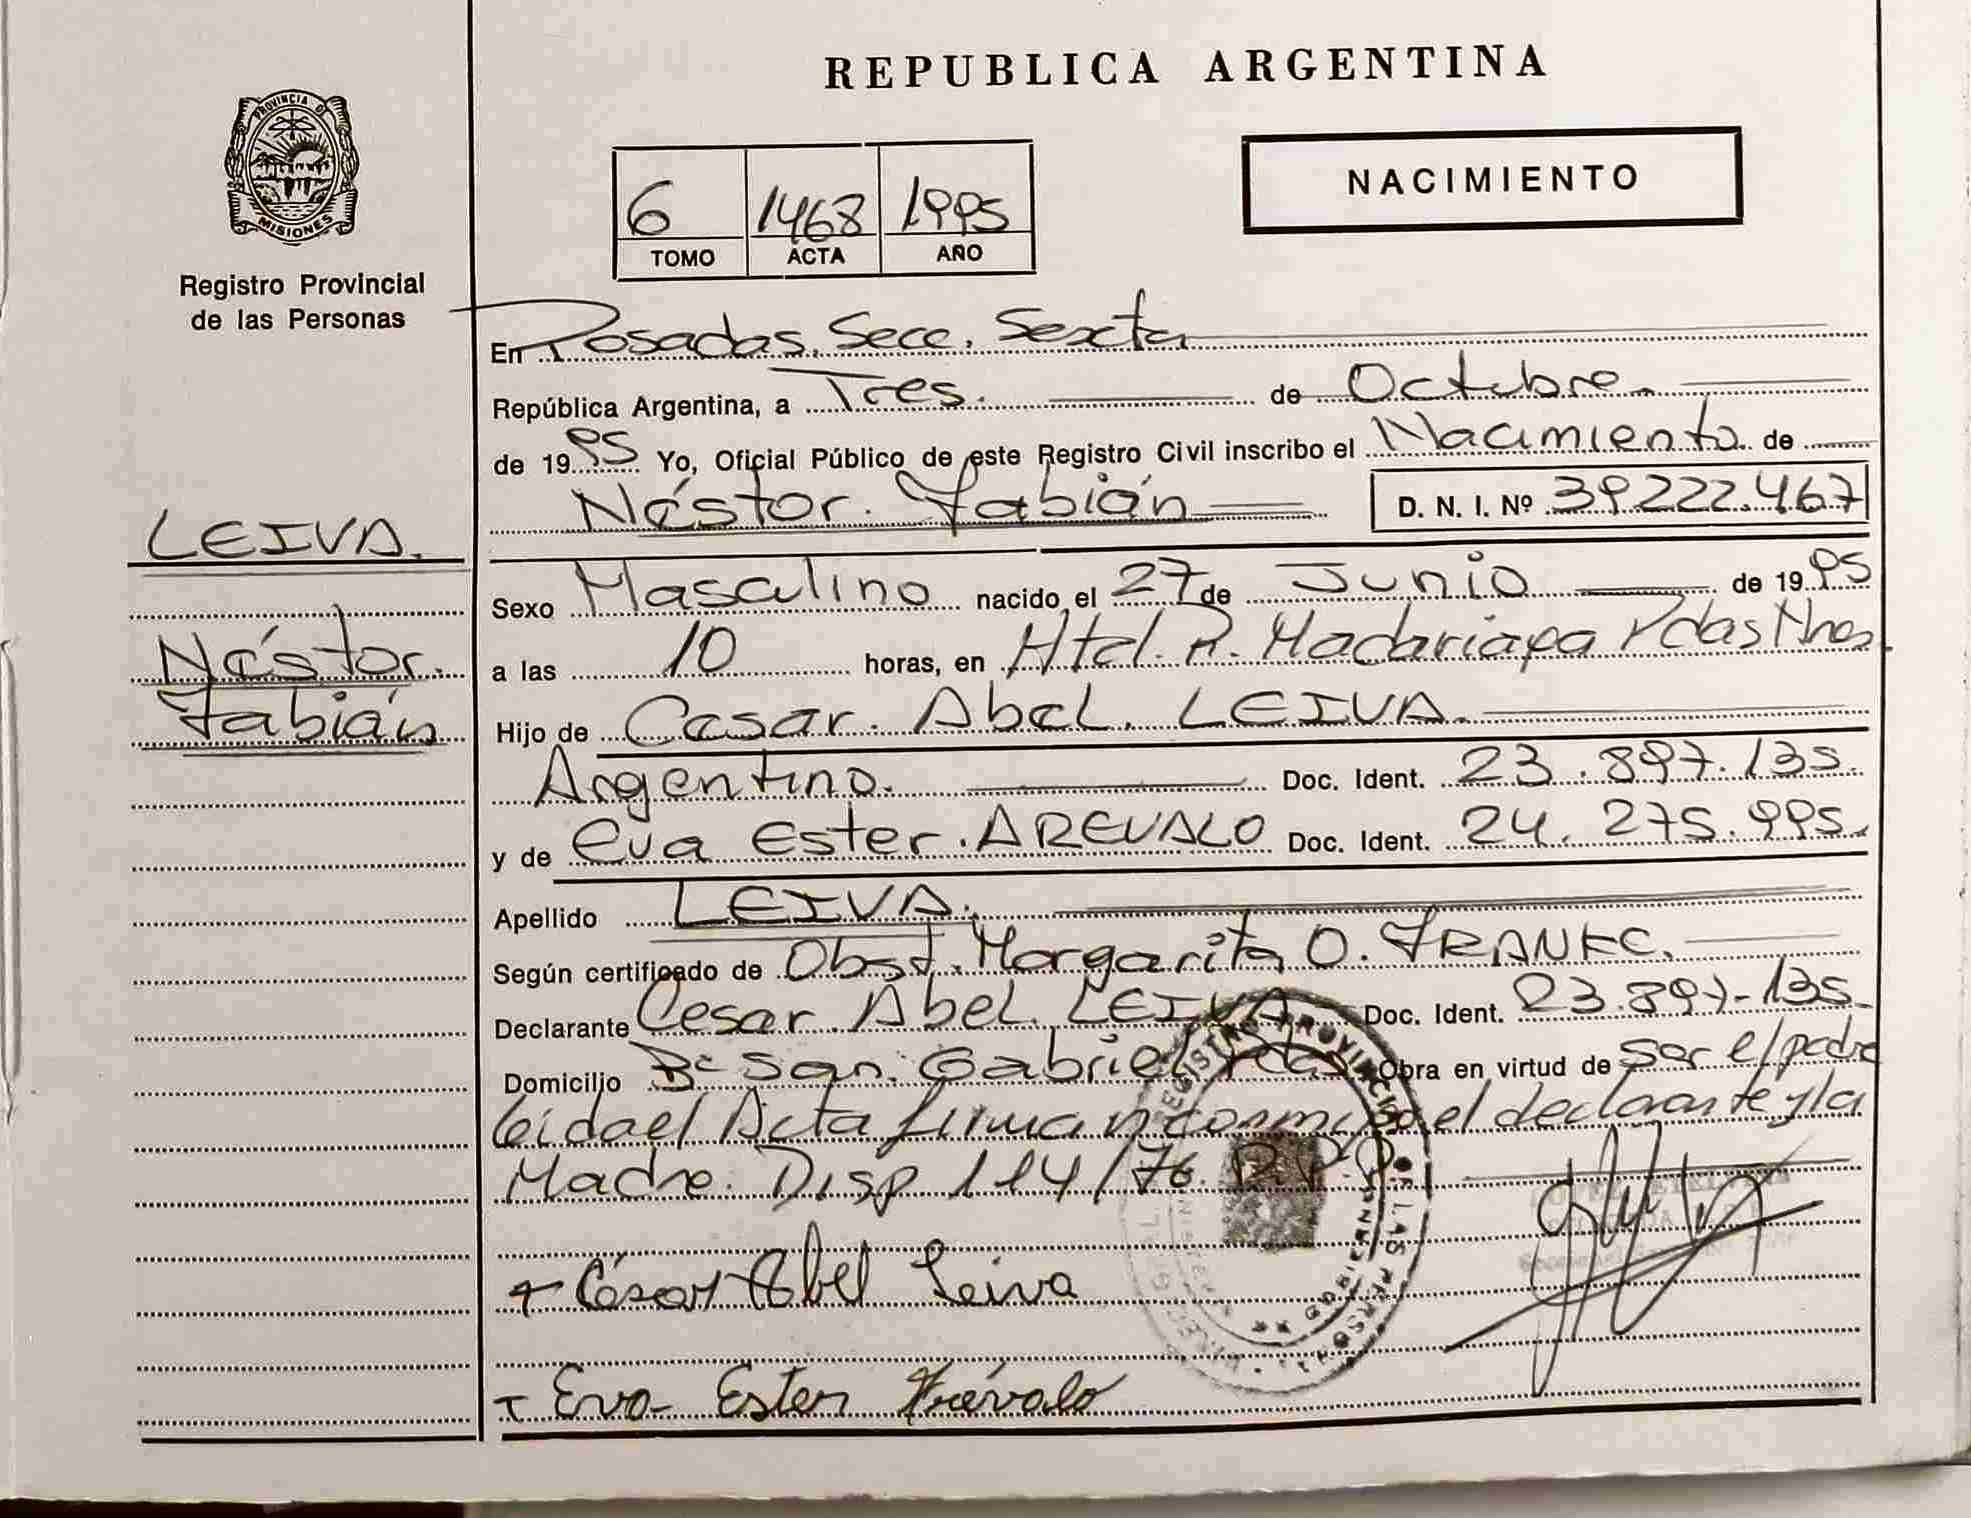 REPUBLICA ARGENTINA
PROVINCIA DE
MISIONES
Registro Provincial
de las Personas
6 1468 1995
TOMO ACTA AÑO
NACIMIENTO
En Posadas. Secc. Sexta
República Argentina, a Tres. de Octubre
de 1995 Yo, Oficial Público de este Registro Civil inscribo el Nacimiento de
Néstor. Fabián D. N. I. Nº 39222.467
LEIVA.
Néstor.
Fabián
Sexo Masculino nacido el 27 de Junio de 1995
a las 10 horas, en Htal. R. Madariaga Pdas Mnes.
Hijo de Cesar. Abel. LEIVA.
Argentino. Doc. Ident. 23.897.135.
y de Eva Ester. AREVALO Doc. Ident. 24.275.995.
Apellido LEIVA.
Según certificado de Obst. Margarita O. FRANKE.
Declarante Cesar Abel. LEIVA Doc. Ident. 23.897-135.
Domicilio Bº San. Gabriel Pdas Obra en virtud de ser el padre
leida el Acta firman conmigo el declarante y la
Madre. Disp 114/76. R.P.P.
César Abel Leiva
Eva Ester Arévalo